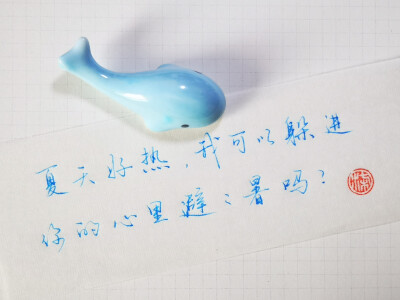 夏天好热，我可以躲进
你的心里避々暑吗？